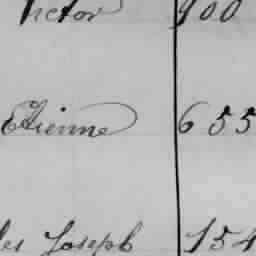 Victor 900
Etienne 655
les Joseph 154